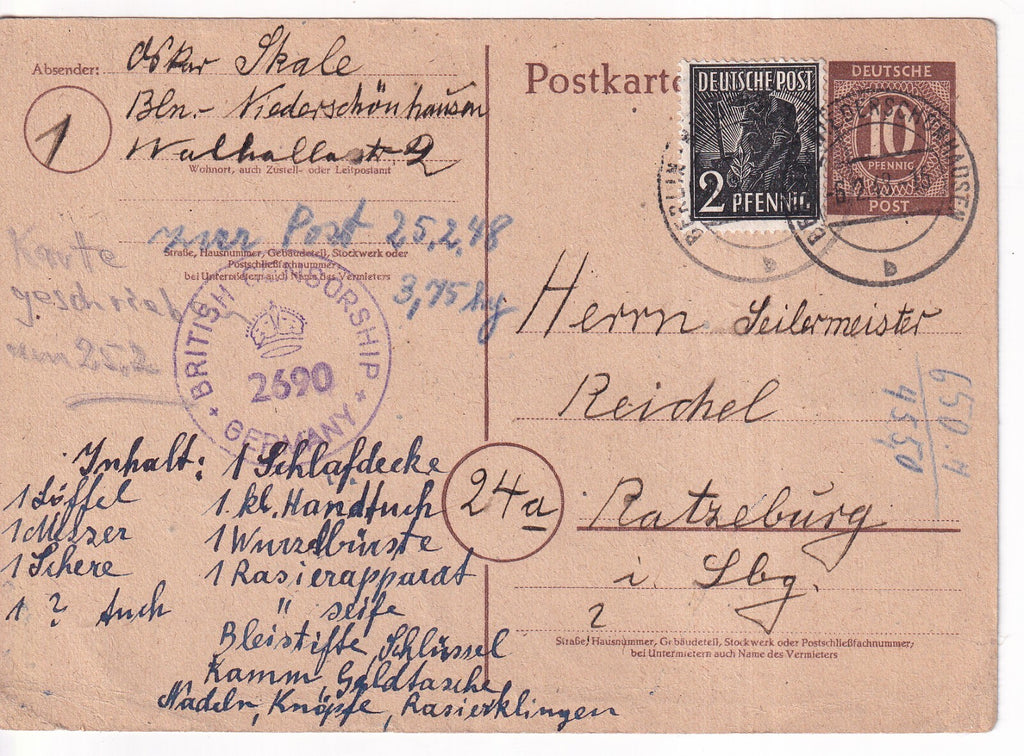 Absender: Oskar Skale
Bln.- Niederschönhausen
Walhallastr. 2
Wohnort, auch Zustell- oder Leitpostamt
1
Postkarte
DEUTSCHE POST
2 PFENNIG
DEUTSCHE
10
PFENNIG
POST
BERLIN-NIEDERSCHÖNHAUSEN
b
BERLIN-NIEDERSCHÖNHAUSEN
-6.2.48
b
Post 25.2.48
3,75 kg
Straße, Hausnummer, Gebäudeteil, Stockwerk oder
Postschließfachnummer
bei Untermietern auch Name des Vermieters
Karte
geschrieb
25.2
BRITISH CENSORSHIP
2690
GERMANY
Herrn Seilermeister
Reichel
24a
Ratzeburg
i. Lbg.
2
Straße, Hausnummer, Gebäudeteil, Stockwerk oder Postschließfachnummer,
bei Untermietern auch Name des Vermieters
650.4
4550
Inhalt: 1 Schlafdecke
1 Löffel 1 kl. Handtuch
1 Messer 1 Wurzelbürste
1 Schere 1 Rasierapparat
1 ? Tuch " seife
Bleistifte, Schlüssel
Kamm, Geldtasche
Nadeln, Knöpfe, Rasierklingen